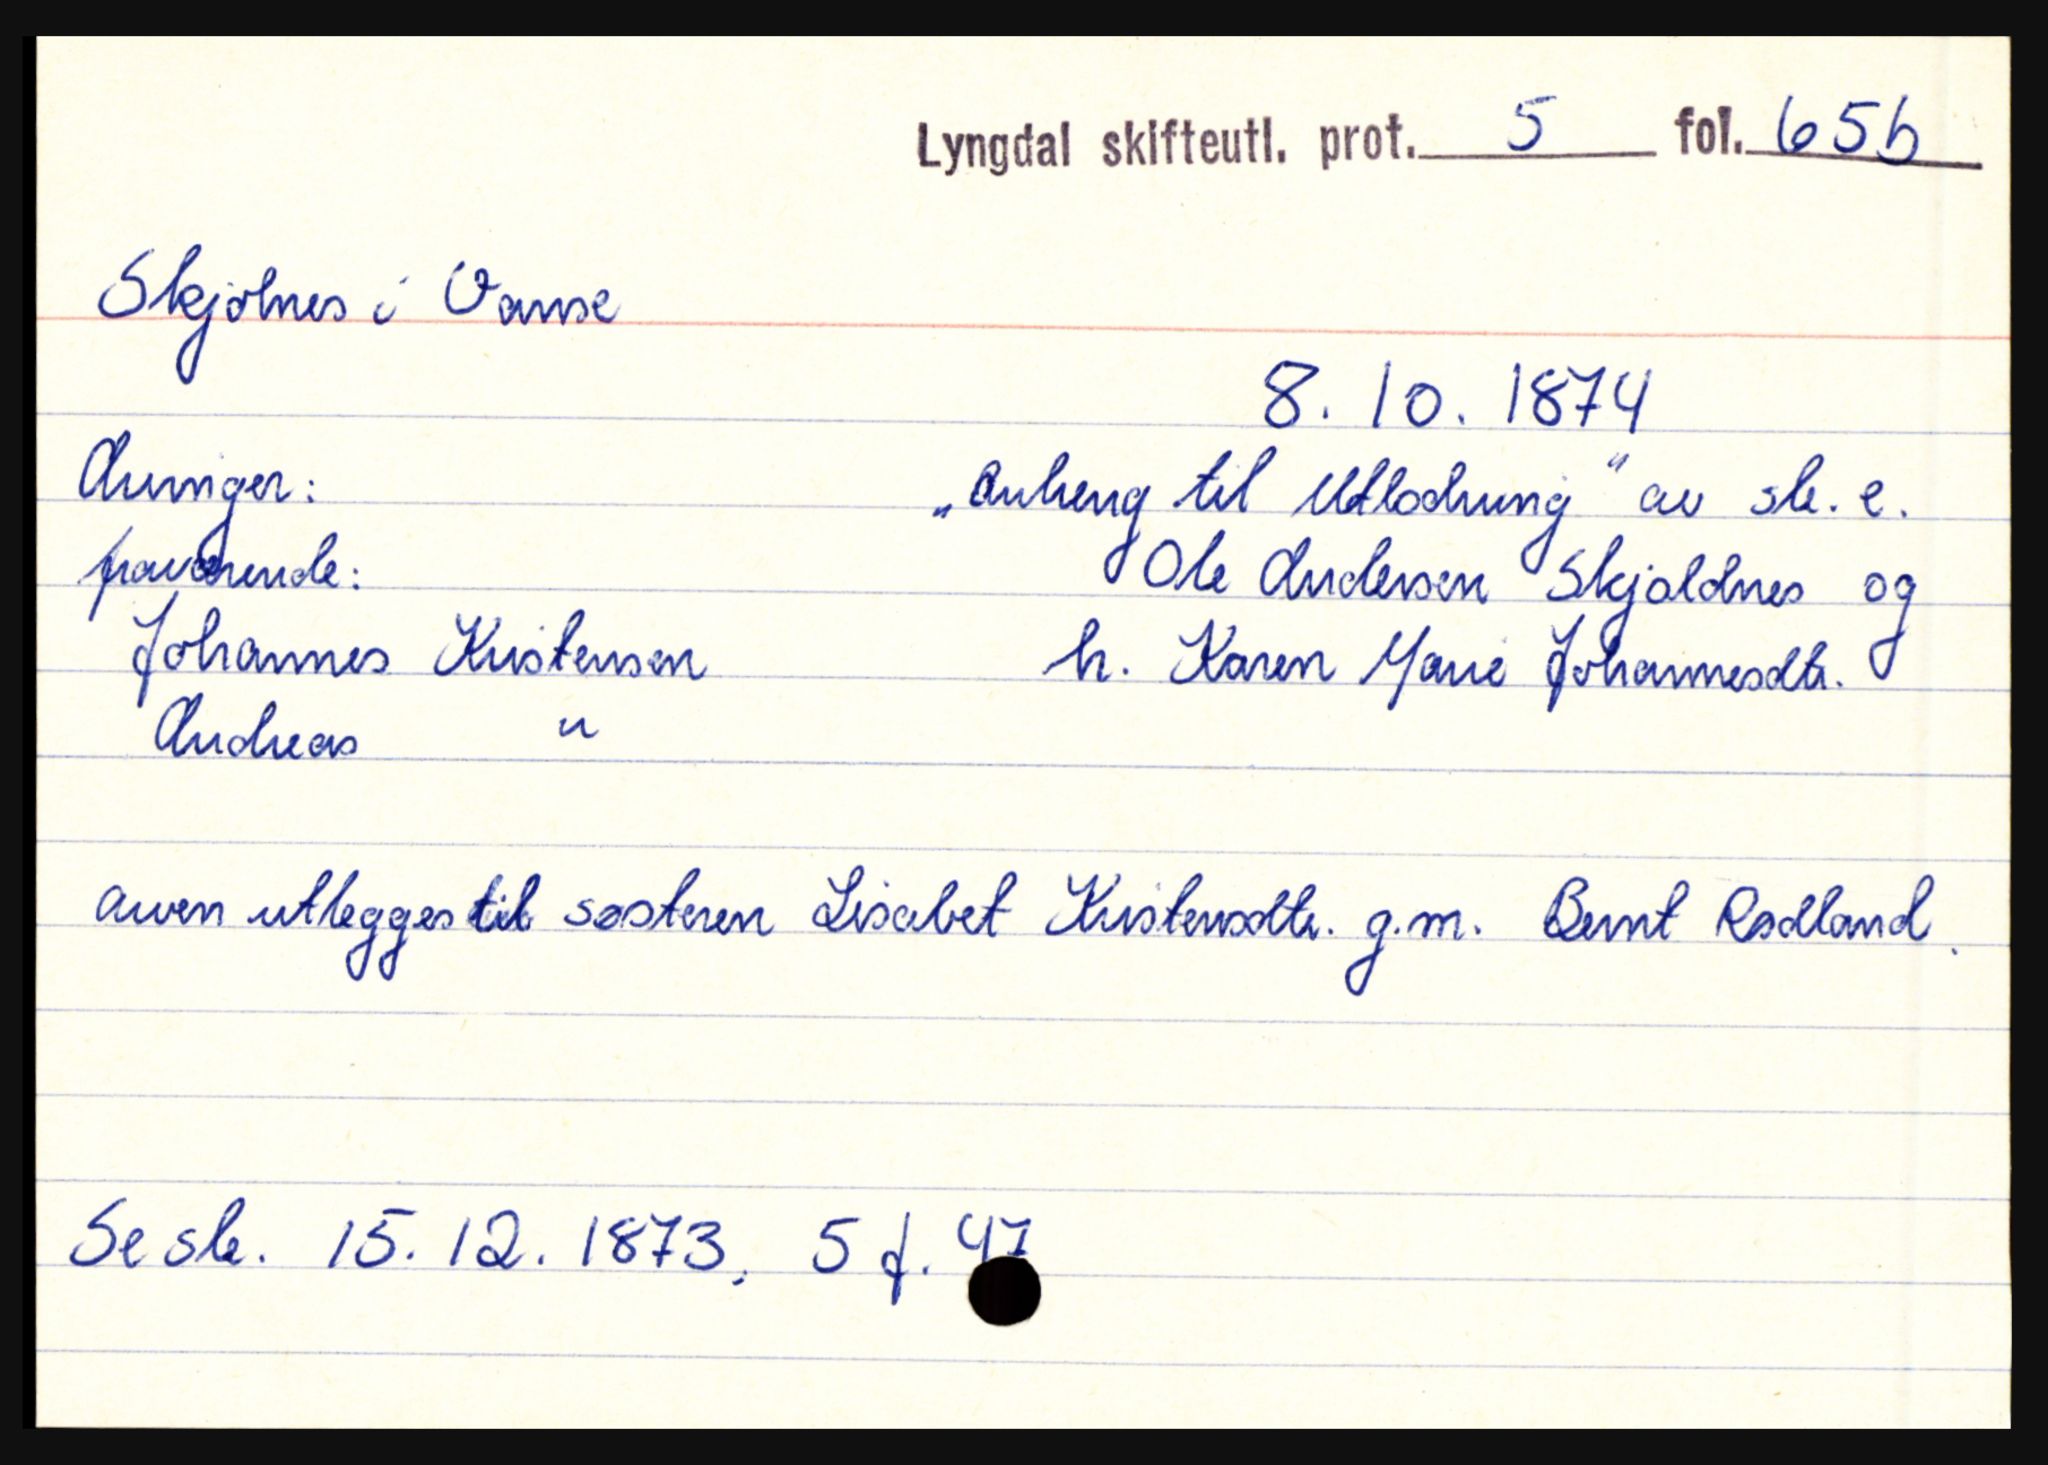 Lyngdal skifteutl. prot. 5 fol. 65b
Skjølnes i Vanse
8. 10. 1874
Arvinger: „Anheng til Utlodning“ av sk. e.
fraværende: Ole Andersen Skjoldnes og
Johannes Kristensen h. Karen Marie Johannesdtr.
Andreas "
arven utlegges til søsteren Lisabet Kristensdtr. g.m. Bernt Rødland.
Se sk. 15. 12. 1873, 5 f. 47